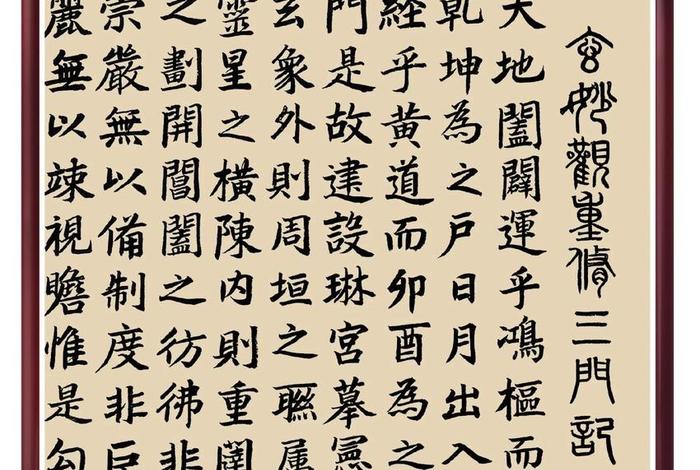 玄妙觀重脩三門記
天地闔闢運乎鴻樞而
乾坤為之戶日月出入
經乎黃道而卯酉為之
門是故建設琳宮摹憲
玄象外則周垣之聮属
靈星之橫陳内則重闥
之劃開閶闔之彷彿非
崇嚴無以備制度非巨
麗無以竦視瞻惟是勾